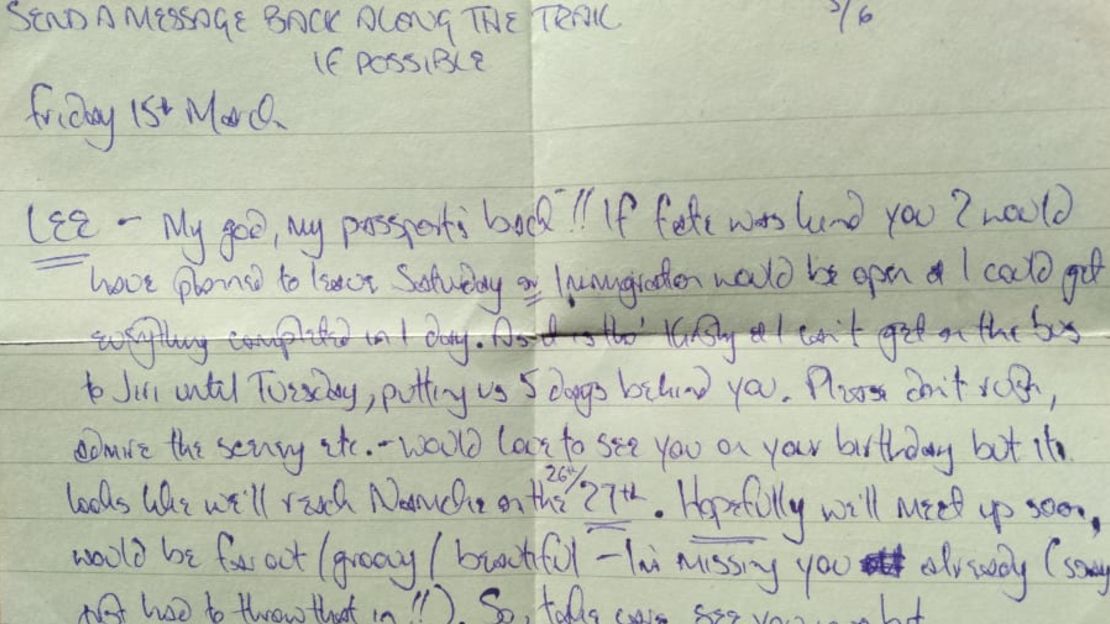 SEND A MESSAGE BACK ALONG THE TRAIL
IF POSSIBLE
5/6
Friday 15th March
LEE - My god, my passport's back!! If fate was kind you & I would
have planned to leave Saturday as Immigration would be open & I could get
everything completed in 1 day. As it is tho' & I can't get on the bus
to Jiri until Tuesday, putting us 5 days behind you. Please don't rush,
admire the scenery etc. - would love to see you on your birthday but it
looks like we'll reach Namche on the 26th/27th. Hopefully we'll meet up soon,
would be far out / groovy / beautiful - I'm missing you already (sorry
just had to throw that in!!). So, take care, see you